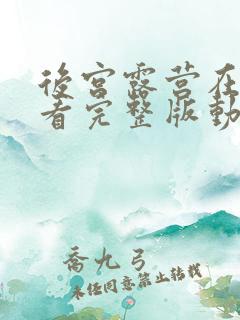 後宮露营在
看完整版動
喬九弓
未经同意禁止转载